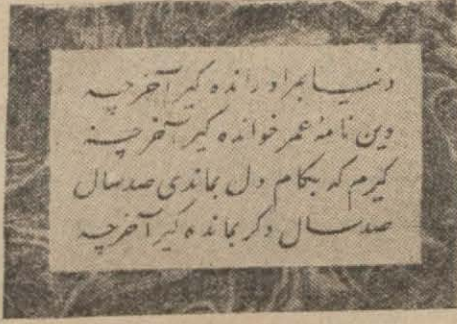 دنیا بمراد رانده گیر آخر چه
وین نامهٔ عمر خوانده گیر آخر چه
گیرم که بکام دل بماندی صد سال
صد سال دگر بمانده گیر آخر چه